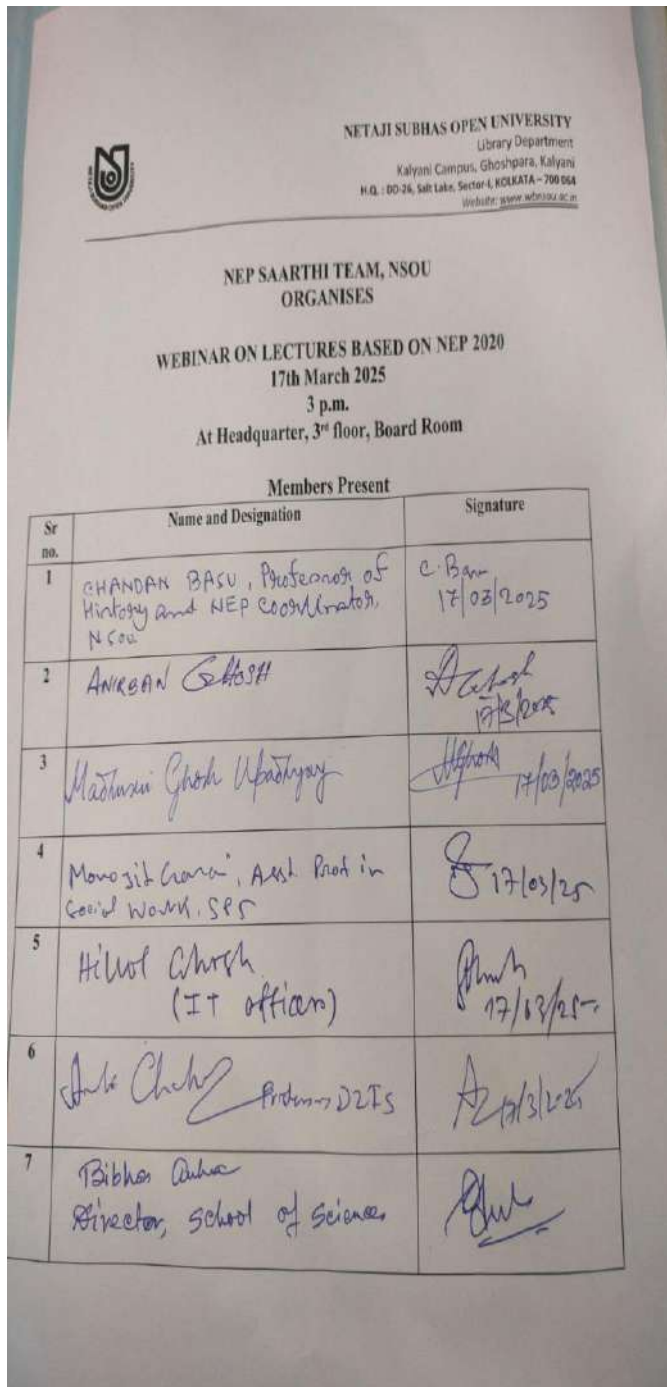 NETAJI SUBHAS OPEN UNIVERSITY
Library Department
Kalyani Campus, Ghoshpara, Kalyani
H.Q. : DD-26, Salt Lake, Sector-I, KOLKATA – 700 064
Website: www.wbnsou.ac.in
NETAJI SUBHAS OPEN UNIVERSITY
NEP SAARTHI TEAM, NSOU
ORGANISES
WEBINAR ON LECTURES BASED ON NEP 2020
17th March 2025
3 p.m.
At Headquarter, 3rd floor, Board Room
Members Present
Sr no. Name and Designation Signature
1 CHANDAN BASU, Professor of C. Basu
History and NEP Coordinator, 17/03/2025
NSOU
2 ANIRBAN GHOSH AGhosh
17/3/2025
3 Madhusri Ghosh Upadhyay 17/03/2025
4 Monojit Garai, Asst. Prof in 17/03/25
Social Work, SPS
5 Hillol Ghosh
(IT officer) 17/03/25
6 Professor DLIS 17/3/2025
7 Bibhas Guha
Director, School of Sciences